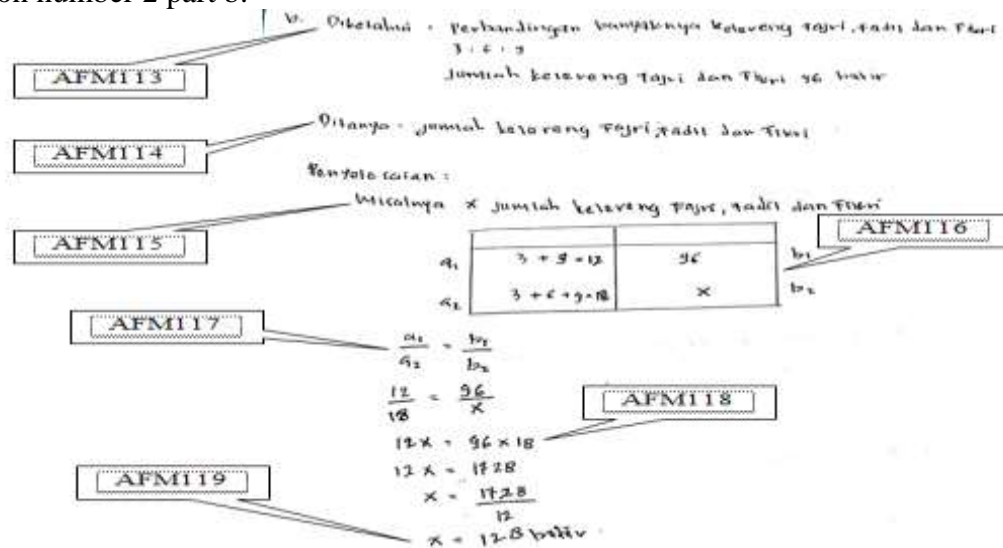 on number 2 part b.
b. Diketahui : Perbandingan banyaknya kelereng Fajri, Fadil dan Fikri
3 : 6 : 9
AFM113
Jumlah kelereng Fajri dan Fikri 96 butir
Ditanya : jumlah kelereng Fajri, Fadil dan Fikri
AFM114
Penyelesaian :
Misalnya x jumlah kelereng Fajri, Fadil dan Fikri
AFM115
AFM116
a₁ 3 + 9 = 12 96 b₁
a₂ 3 + 6 + 9 = 18 x b₂
AFM117
a₁/a₂ = b₁/b₂
12/18 = 96/x
AFM118
12x = 96 × 18
12x = 1728
AFM119
x = 1728/12
x = 128 butir